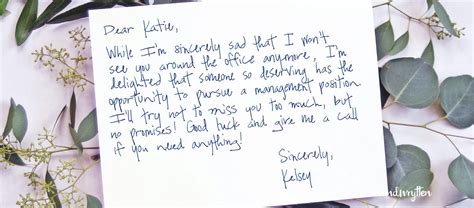 Dear Katie,
While I'm sincerely sad that I won't
see you around the office anymore, I'm
delighted that someone so deserving has the
opportunity to pursue a management position.
I'll try not to miss you too much, but
no promises! Good luck and give me a call
if you need anything!
Sincerely,
Kelsey